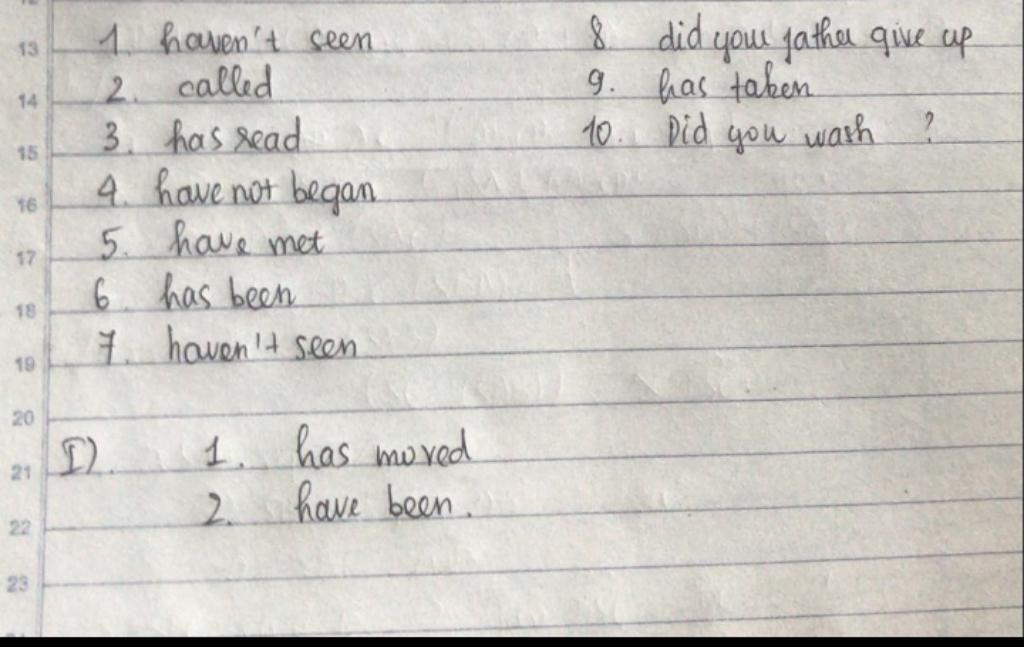 13
14
15
16
17
18
19
20
21
22
23
1. haven't seen
2. called
3. has read
4. have not began
5. have met
6. has been
7. haven't seen
8. did your father give up
9. has taken
10. Did you wash ?
I). 1. has moved
2. have been.